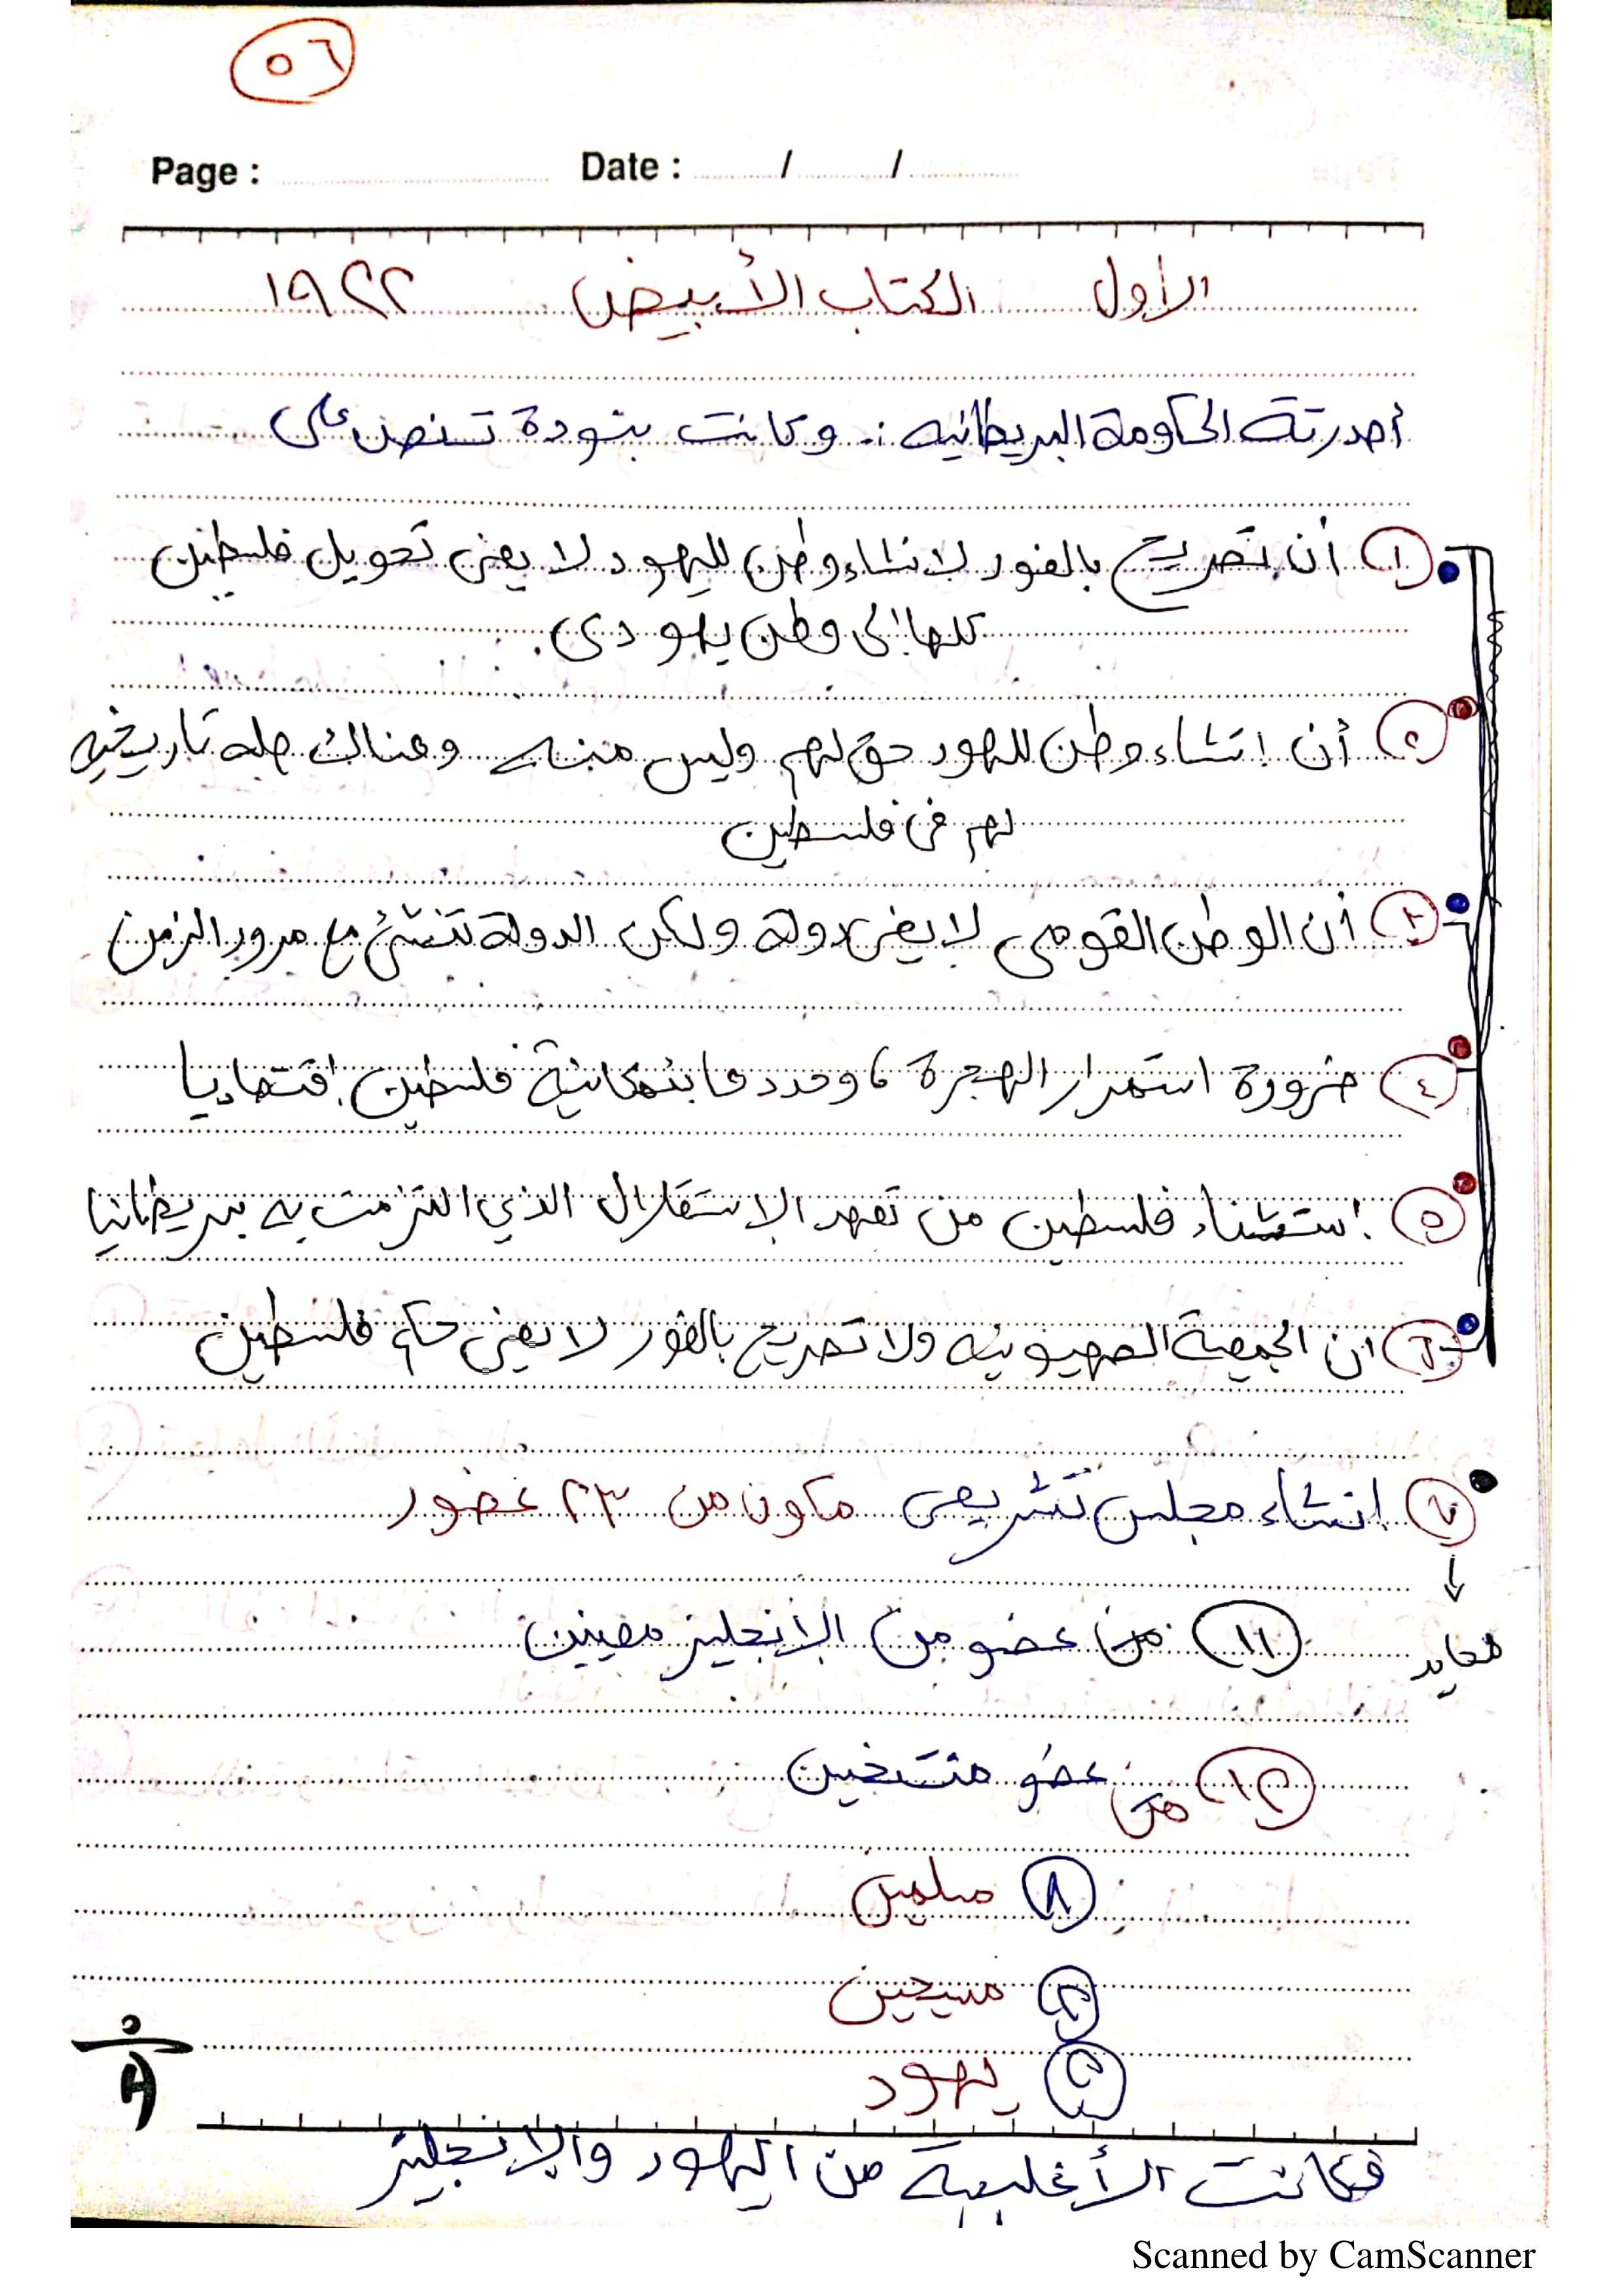 ٥٦
Page : Date : / /
الأول الكتاب الأبيض ١٩٢٢
أصدرتة الحكومة البريطانيه :- وكانت بنودة تنص على
١ أن تصريح بالفور لانشاء وطن لليهود لا يعنى تحويل فلسطين
كلها إلى وطن يهودى.
٢ أن إنشاء وطن لليهود حق لهم وليس منه وهناك صله تاريخيه
لهم فى فلسطين
٣ أن الوطن القومى لا يعنى دولة ولكن الدولة تنشئ مع مرور الزمن
٤ ضرورة استمرار الهجرة ، وحددها بإمكانية فلسطين إقتصاديا
٥ إستثناء فلسطين من تعهد الإستقلال الذي التزمت به بريطانيا
٦ ان الجمعية الصهيونيه ولا تصريح بالفور لا يعنى حكم فلسطين
٧ إنشاء مجلس تشريعى مكون من ٢٣ عضور
١١ من عضو من الإنجليز معينين
محايد
١٢ من عضو منتخبين
٨ مسلمين
٢ مسيحين
٢ يهود
فكانت الأغلبية من اليهود والإنجليز
Scanned by CamScanner